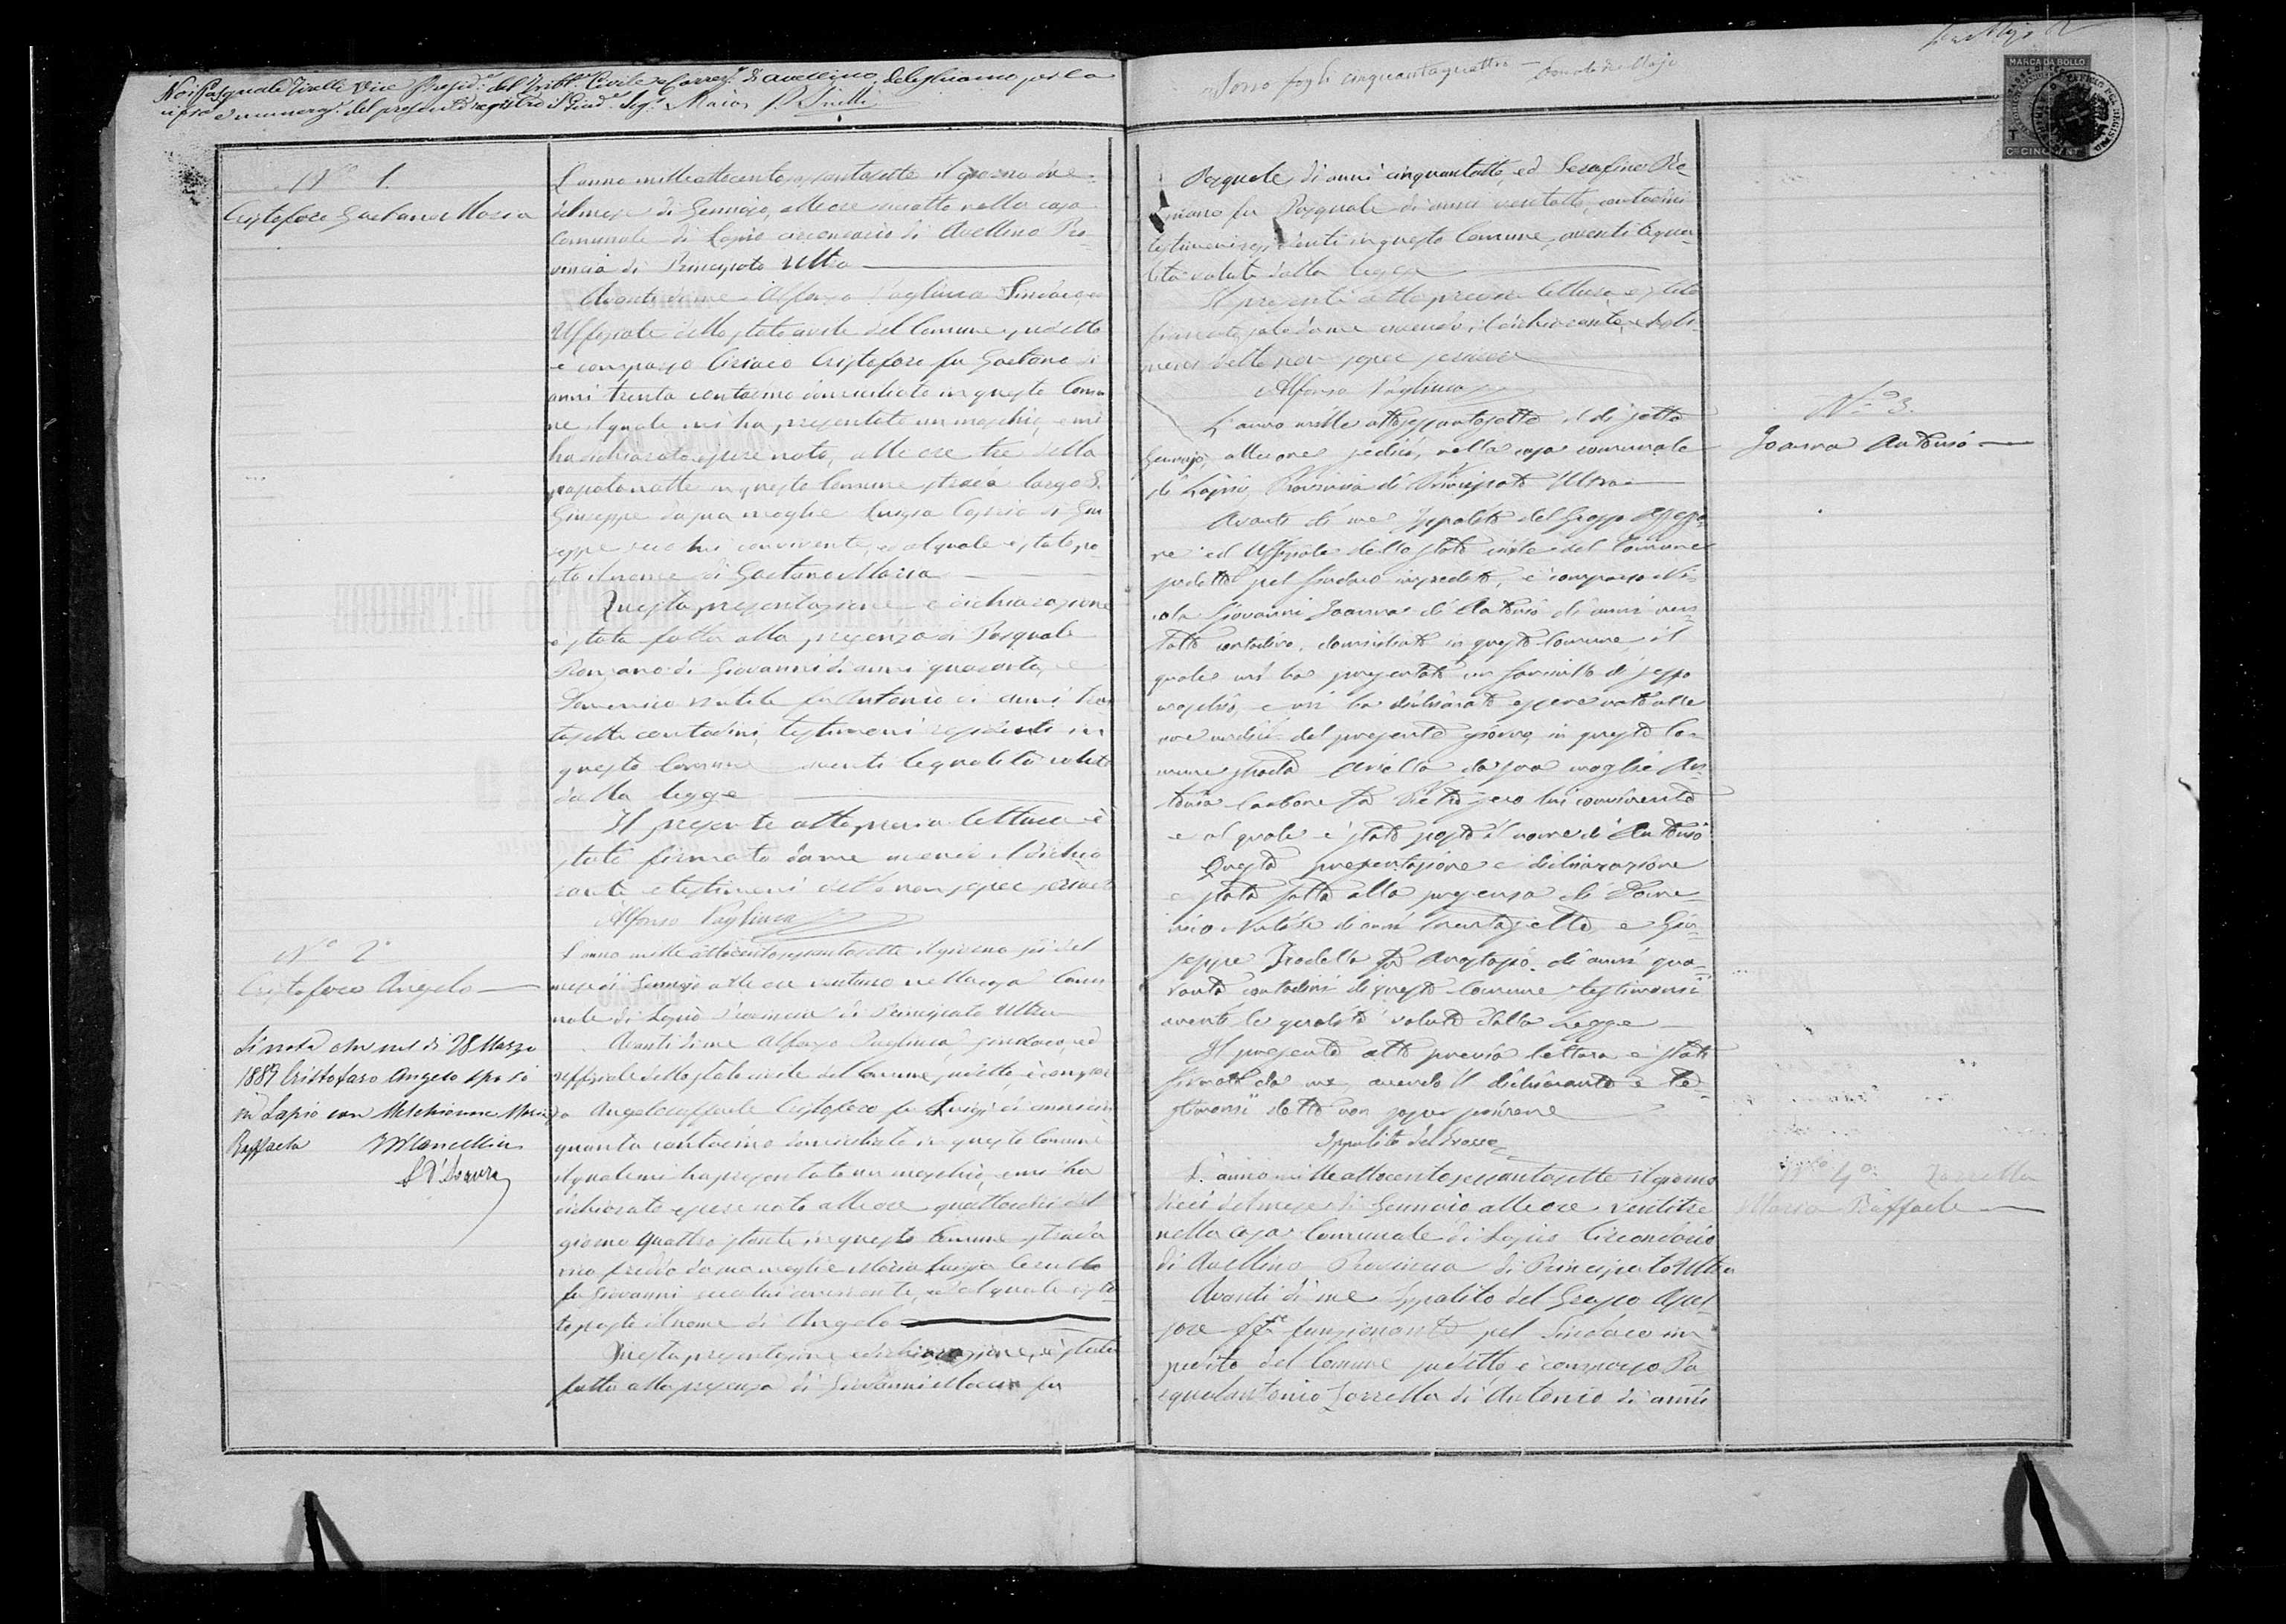 Noi Pasquale Vice Presid.e del Trib.le Civile e Correz.le di Avellino deleghiamo per la
e numeraz.e del presente registro il Giud.e Sig.r Maio
Sono fogli cinquantaquattro
MARCA DA BOLLO
N.° 1.
Cristofaro Gaetano Maria
L'anno milleottocentosessantasette il giorno due
del mese di Gennajo, alle ore nella casa
Comunale di Lapio circondario di Avellino Pro-
vincia di Principato Ultra
Avanti di me Alfonso Pagliuca Sindaco, ed
Uffiziale dello stato civile del Comune sudetto
è comparso Ciriaco Cristofaro fu Gaetano di
anni trenta contadino domiciliato in questo Comu
ne il quale mi ha presentato un maschio, e mi
ha dichiarato essere nato, alle ore tre della
passata notte in questo Comune strada largo S.
Giuseppe da sua moglie Luigia di Giu
seppe seco lui convivente, ed al quale è stato po-
sto il nome di Gaetano Maria
Questa presentazione e dichiarazione
è stata fatta alla presenza di Pasquale
Romano di Giovanni di anni quaranta, e
Domenico Natale fu Antonio di anni tren
tasette contadini, testimoni residenti in
questo Comune aventi le qualità volute
dalla legge
Il presente atto previa lettura è
stato firmato da me avendo il dichia
rante e testimoni detto non saper scrivere
Alfonso Pagliuca
N.° 2.°
Cristofaro Angelo
L'anno milleottocentosessantasette il giorno sei del
mese di Gennajo alle ore ventuno nella casa Comu
nale di Lapio Provincia di Principato Ultra
Avanti di me Alfonso Pagliuca, sindaco, ed
uffiziale dello stato civile del Comune sudetto è compar
so Angeloraffaele Cristofaro fu Luigi di anni cin
quanta contadino domiciliato in questo Comune
il quale mi ha presentato un maschio, e mi ha
dichiarato essere nato alle ore quattordici del
giorno quattro stante in questo Comune strada
vico freddo da sua moglie Maria Luigia
fu Giovanni seco lui convivente, ed al quale è sta-
to posto il nome di Angelo
Questa presentazione, e dichiarazione, è stata
fatta alla presenza di Giovanni fu
Si nota che nel dì 28 Marzo
1889 Cristofaro Angelo sposò
in Lapio con Melchionna Maria
Raffaela
Pasquale di anni cinquantotto, ed Serafino Ro
mano fu Pasquale di anni ventotto, contadini
testimoni residenti in questo Comune, aventi le qua-
lità volute dalla legge
Il presente atto previa lettura è stato
firmato solo da me avendo il dichiarante, e testi-
moni detto non saper scrivere
Alfonso Pagliuca
N.° 3.
Joanna Antonio
L'anno mille ottosessantasette il dì sette
Gennajo, alle ore sedici, nella casa comunale
di Lapio, Provincia di Principato Ultra
Avanti di me Ippolito del Grosso Assesso
re ed Uffiziale dello stato civile del Comune
sudetto pel Sindaco impedito, è comparso Ni-
cola Giovanni Joanna di Antonio di anni ven
totto contadino, domiciliato in questo Comune, il
quale mi ha presentato un fanciullo di sesso
maschio, e mi ha dichiarato essere nato alle
ore undici del presente giorno, in questo Co-
mune strada da sua moglie An-
tonia Carbone fu Pietro seco lui convivente
e al quale è stato posto il nome di Antonio
Questa presentazione e dichiarazione
è stata fatta alla presenza di Dome-
nico Natale di anni trentasette e Giu-
seppe fu Anastasio di anni qua-
ranta contadini di questo Comune testimoni
aventi le qualità volute dalla Legge
Il presente atto previa lettura è stato
firmato da me, avendo il dichiarante e te-
stimoni detto non saper scrivere
Ippolito del Grosso
N.° 4.° Zarrella
Maria Raffaele
L'anno milleottocentosessantasette il giorno
dieci del mese di Gennaio alle ore ventitre
nella casa Comunale di Lapio Circondario
di Avellino Provincia di Principato Ultra
Avanti di me Ippolito del Grosso Asses-
sore funzionante pel Sindaco im
pedito del Comune sudetto è comparso Pa
squalantonio Zarrella di Antonio di anni